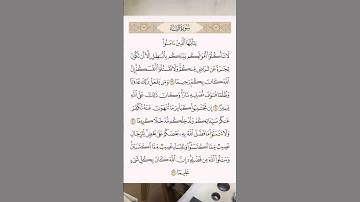 سُورَةُ النِّسَاء
يَٰٓأَيُّهَا ٱلَّذِينَ ءَامَنُوا۟
لَا تَأْكُلُوٓا۟ أَمْوَٰلَكُم بَيْنَكُم بِٱلْبَٰطِلِ إِلَّآ أَن تَكُونَ
تِجَٰرَةً عَن تَرَاضٍ مِّنكُمْ وَلَا تَقْتُلُوٓا۟ أَنفُسَكُمْ إِنَّ
ٱللَّهَ كَانَ بِكُمْ رَحِيمًا وَمَن يَفْعَلْ ذَٰلِكَ عُدْوَٰنًا
وَظُلْمًا فَسَوْفَ نُصْلِيهِ نَارًا وَكَانَ ذَٰلِكَ عَلَى ٱللَّهِ
يَسِيرًا إِن تَجْتَنِبُوا۟ كَبَآئِرَ مَا تُنْهَوْنَ عَنْهُ نُكَفِّرْ
عَنكُمْ سَيِّـَٔاتِكُمْ وَنُدْخِلْكُم مُّدْخَلًا كَرِيمًا
وَلَا تَتَمَنَّوْا۟ مَا فَضَّلَ ٱللَّهُ بِهِۦ بَعْضَكُمْ عَلَىٰ بَعْضٍ لِّلرِّجَالِ
نَصِيبٌ مِّمَّا ٱكْتَسَبُوا۟ وَلِلنِّسَآءِ نَصِيبٌ مِّمَّا ٱكْتَسَبْنَ
وَسْـَٔلُوا۟ ٱللَّهَ مِن فَضْلِهِۦٓ إِنَّ ٱللَّهَ كَانَ بِكُلِّ شَىْءٍ
عَلِيمًا